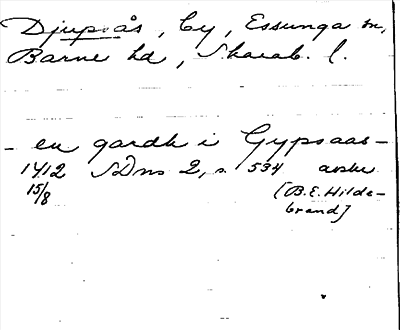 Djupsås, by, Essunga sn,
Barne hd, Skarab. l.
- en gardh i Gypsaas -
1412 SDns 2, s. 534 avskr
15/8 [B.E. Hilde-
brand]